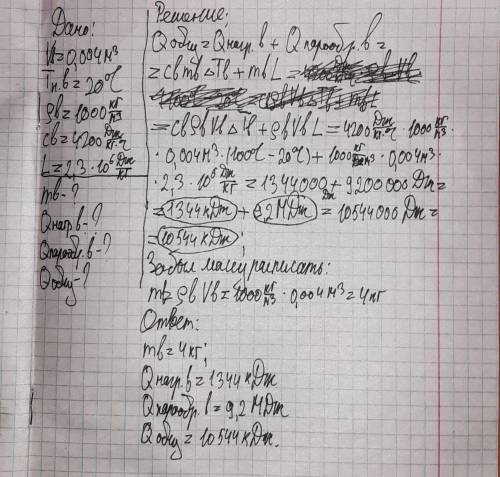 Дано:
Vв=0,004м³
Tн.в=20°C
ρв=1000 кг/м³
cв=4200 Дж/кг·°C
L=2,3·10⁶ Дж/кг
mв-?
Qнагр.в-?
Qпарообр.в-?
Qобщ-?
Решение:
Qобщ=Qнагр.в+Qпарообр.в=
=cвmв△Tв+mвL=
=cвρвVв△T+ρвVвL=4200 Дж/кг·°C·1000 кг/м³·
·0,004м³·(100°C-20°C)+1000 кг/м³·0,004м³·
·2,3·10⁶ Дж/кг=1344000+9200000Дж=
=1344кДж+9,2МДж=10544000Дж=
=10544кДж;
Забыл массу расписать:
mв=ρвVв=1000 кг/м³·0,004м³=4кг
Ответ:
mв=4кг;
Qнагр.в=1344кДж
Qпарообр.в=9,2МДж
Qобщ=10544кДж.